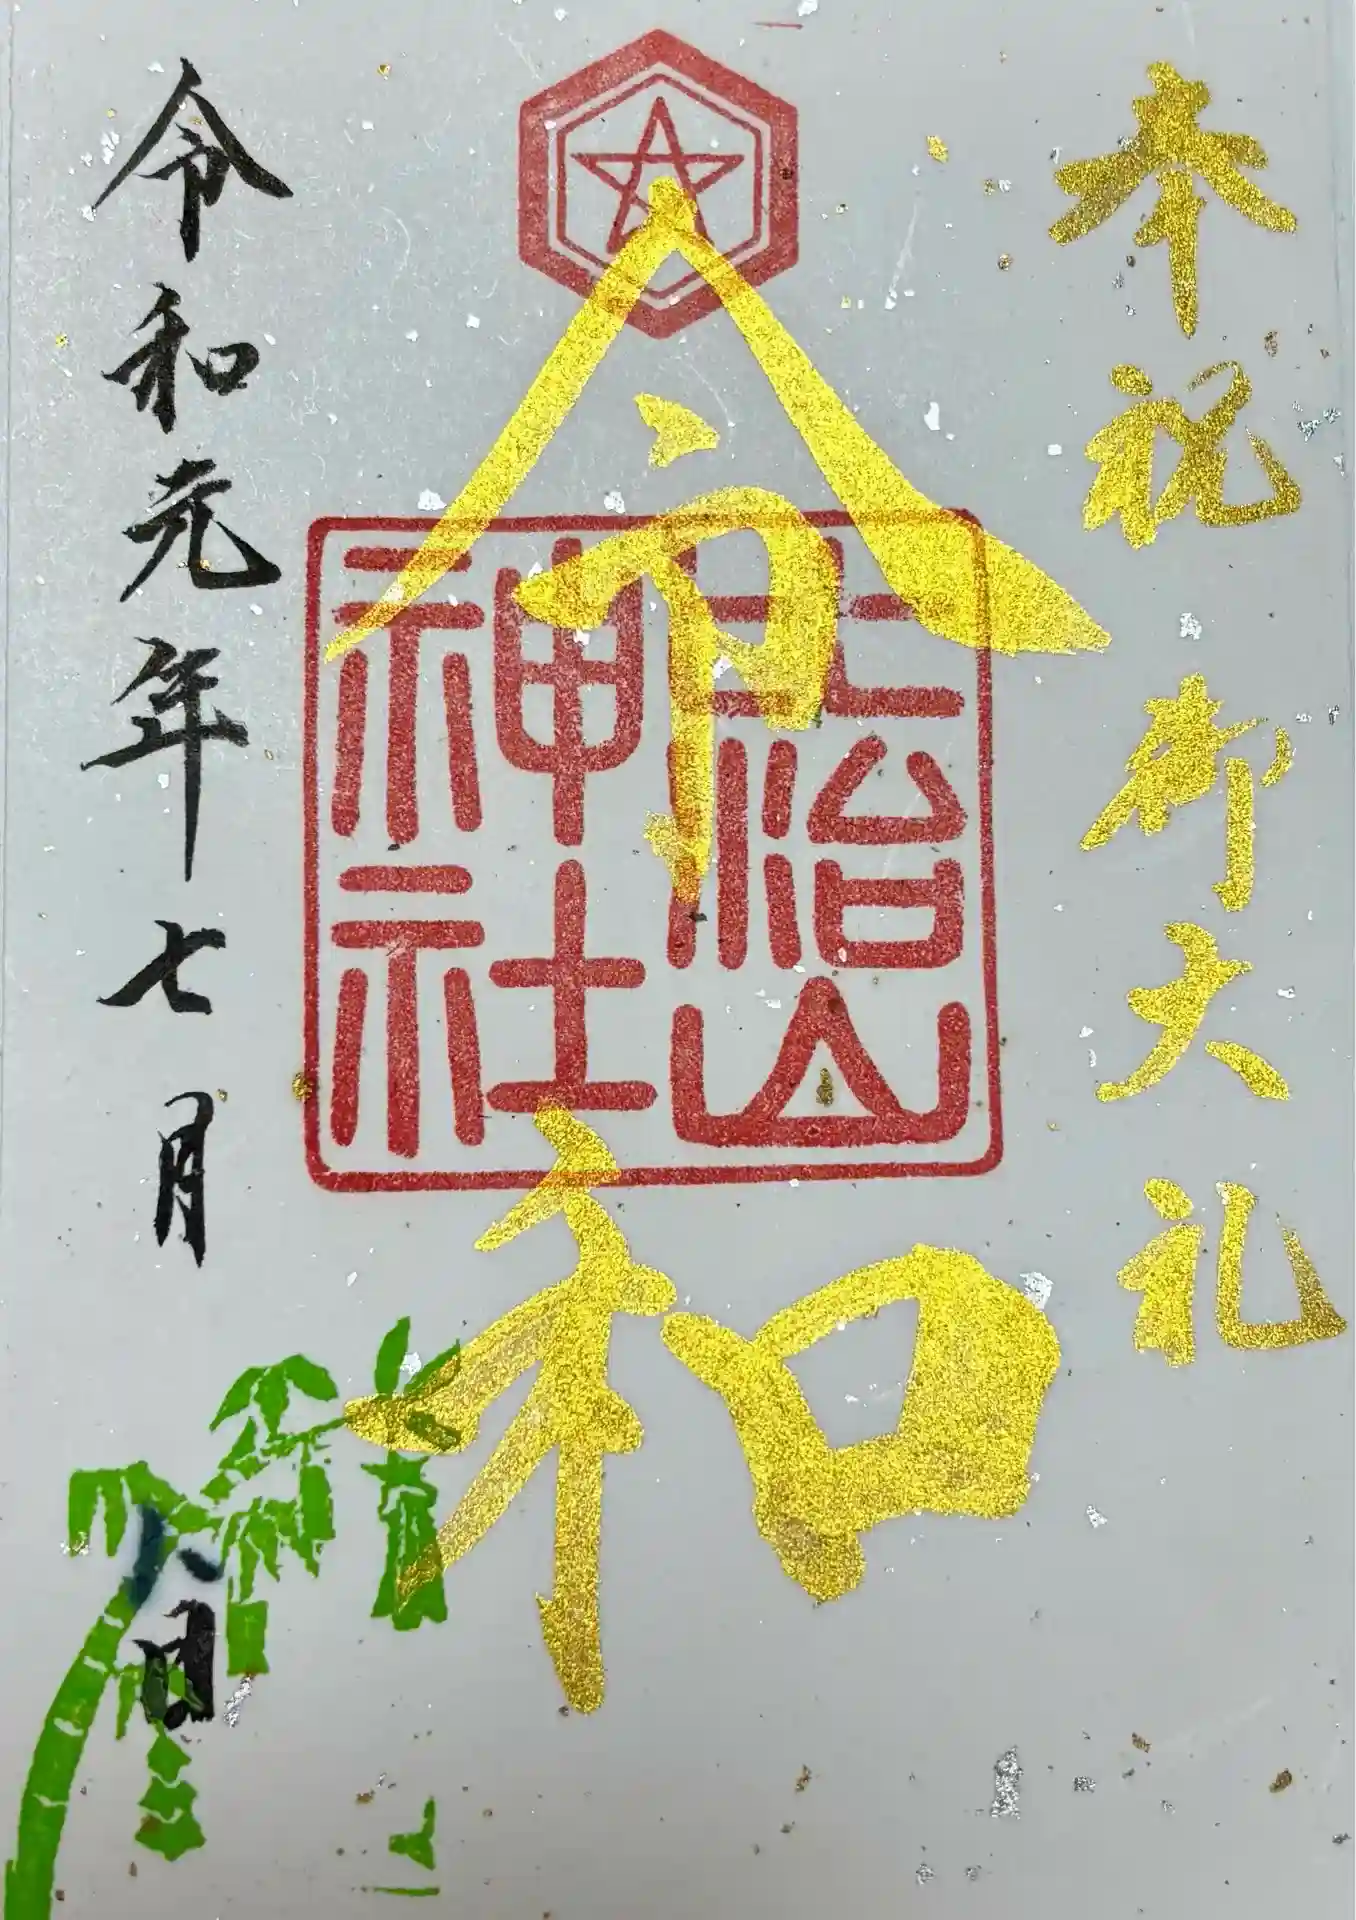 奉祝 御大礼
令和
比治山
神社
令和元年七月八日